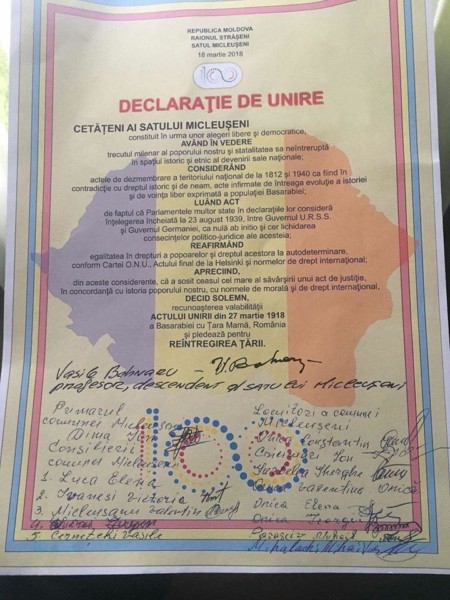 REPUBLICA MOLDOVA
RAIONUL STRĂȘENI
SATUL MICLEUȘENI
18 martie 2018
100
DECLARAȚIE DE UNIRE
CETĂȚENI AI SATULUI MICLEUȘENI
constituit în urma unor alegeri libere și democratice,
AVÂND ÎN VEDERE
trecutul milenar al poporului nostru și statalitatea sa neîntreruptă
în spațiul istoric și etnic al devenirii sale naționale;
CONSIDERÂND
actele de dezmembrare a teritoriului național de la 1812 și 1940 ca fiind în
contradicție cu dreptul istoric și de neam, acte infirmate de întreaga evoluție a istoriei
și de voința liber exprimată a populației Basarabiei;
LUÂND ACT
de faptul că Parlamentele multor state în declarațiile lor consideră
înțelegerea încheiată la 23 august 1939, între Guvernul U.R.S.S.
și Guvernul Germaniei, ca nulă ab initio și cer lichidarea
consecințelor politico-juridice ale acesteia;
REAFIRMÂND
egalitatea în drepturi a popoarelor și dreptul acestora la autodeterminare,
conform Cartei O.N.U., Actului final de la Helsinki și normelor de drept internațional;
APRECIIND,
din aceste considerente, că a sosit ceasul cel mare al săvârșirii unui act de justiție,
în concordanță cu istoria poporului nostru, cu normele de morală și de drept internațional,
DECID SOLEMN,
recunoașterea valabilității
ACTULUI UNIRII din 27 martie 1918
a Basarabiei cu Țara Mamă, România
și pledează pentru
REÎNTREGIREA ȚĂRII.
Vasile Bohnaru
profesor, descendent al satului Micleușeni
Primarul
comunei Micleușeni
Dima Ion
Consilierii
comunei Micleușeni
1. Luca Elena
2. Ivanesi Victoria
3. Micleușanu Valentin
4.
5. Cernețchi Vasile
100
Locuitori a comunei
Micleușeni
Onica Constantin
Ion
Gheorghe
Valentina Onica
Onica Elena
Onica
Mihail
Mihalachi Mihai